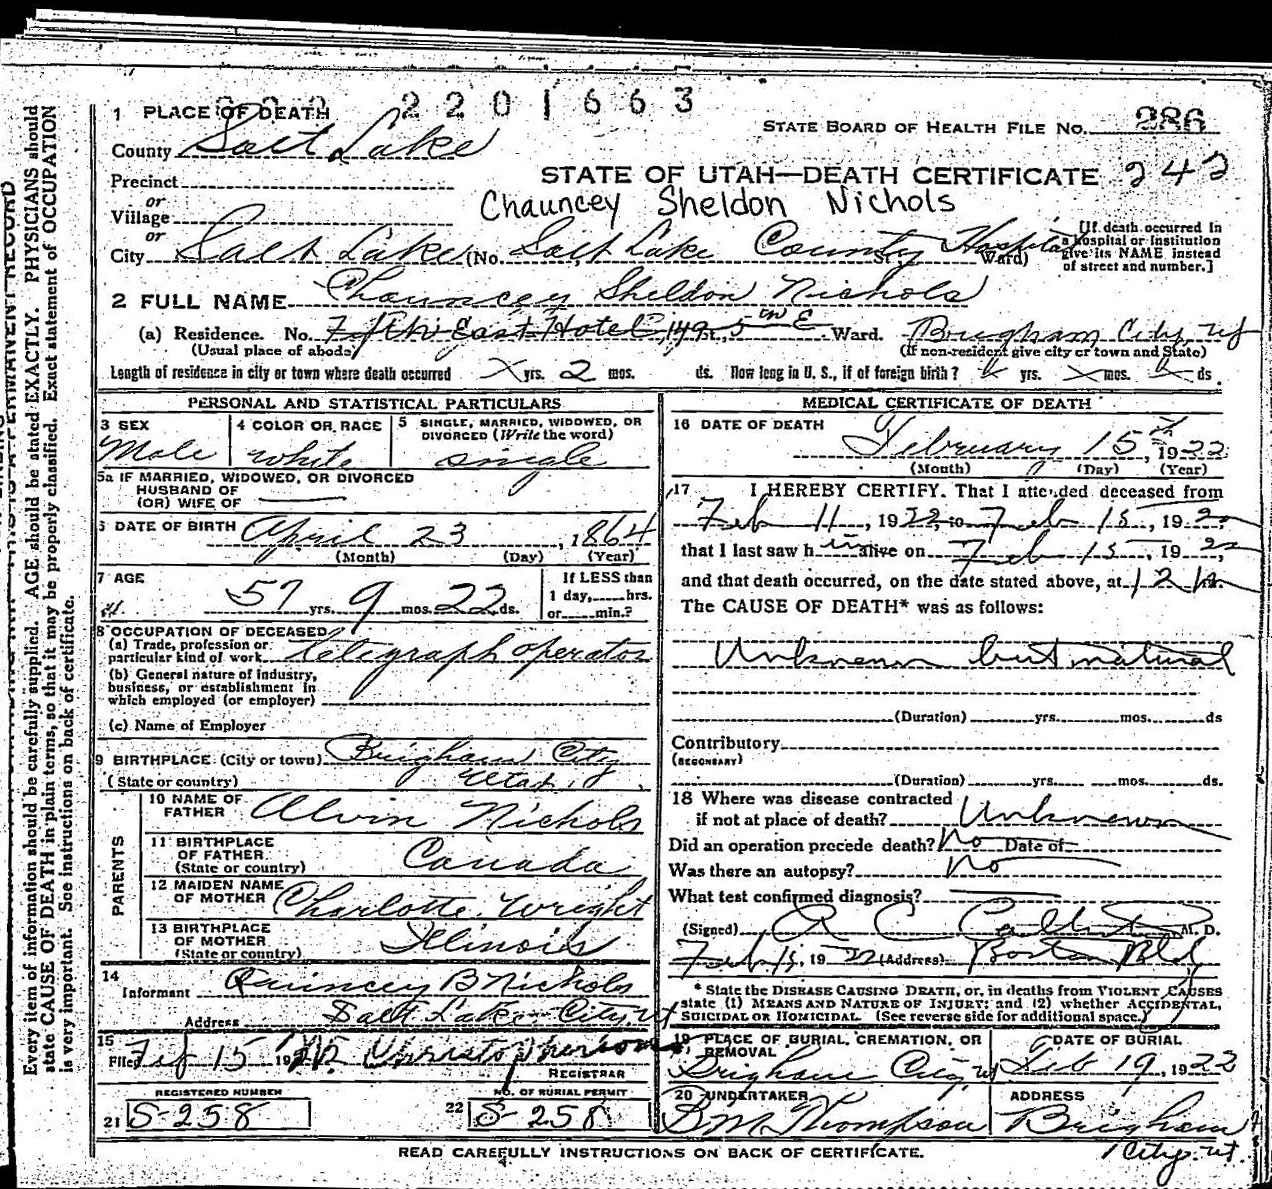 2201663
1 PLACE OF DEATH
STATE BOARD OF HEALTH FILE NO. 286
County Salt Lake
STATE OF UTAH—DEATH CERTIFICATE 242
Precinct
or
Village
Chauncey Sheldon Nichols
or
City Salt Lake (No. Salt Lake County Hospital St. Ward)
[If death occurred in a hospital or institution give its NAME instead of street and number.]
2 FULL NAME Chauncey Sheldon Nichols
(a) Residence. No. Fifth East Hotel, 149 St., 5th E Ward. Brigham City, Ut
(Usual place of abode) (If non-resident give city or town and State)
Length of residence in city or town where death occurred X yrs. 2 mos. ds. How long in U. S., if of foreign birth? yrs. X mos. ds.
PERSONAL AND STATISTICAL PARTICULARS
3 SEX Male
4 COLOR OR RACE white
5 SINGLE, MARRIED, WIDOWED, OR DIVORCED (Write the word) single
5a IF MARRIED, WIDOWED, OR DIVORCED
HUSBAND OF
(OR) WIFE OF
6 DATE OF BIRTH April 23, 1864
(Month) (Day) (Year)
7 AGE 57 yrs. 9 mos. 22 ds.
If LESS than
1 day, hrs.
or min.?
8 OCCUPATION OF DECEASED
(a) Trade, profession or
particular kind of work telegraph operator
(b) General nature of industry,
business, or establishment in
which employed (or employer)
(c) Name of Employer
9 BIRTHPLACE (City or town) Brigham City
(State or country) Utah
PARENTS
10 NAME OF FATHER Alvin Nichols
11 BIRTHPLACE OF FATHER (State or country) Canada
12 MAIDEN NAME OF MOTHER Charlotte Wright
13 BIRTHPLACE OF MOTHER (State or country) Illinois
14
Informant Quincey B Nichols
Address Salt Lake City, Ut
15
Filed Feb 15 192
REGISTRAR
REGISTERED NUMBER
21 S-258
NO. OF BURIAL PERMIT
22 S-258
MEDICAL CERTIFICATE OF DEATH
16 DATE OF DEATH February 15th, 1922
(Month) (Day) (Year)
17 I HEREBY CERTIFY. That I attended deceased from
Feb 11, 1922 to Feb 15, 1922
that I last saw him alive on Feb 15, 1922,
and that death occurred, on the date stated above, at 12
The CAUSE OF DEATH* was as follows:
Unknown but natural
(Duration) yrs. mos. ds
Contributory
(SECONDARY)
(Duration) yrs. mos. ds.
18 Where was disease contracted
if not at place of death? Unknown
Did an operation precede death? No Date of
Was there an autopsy? No
What test confirmed diagnosis?
(Signed) M. D.
Feb 15, 1922 (Address) Boston Bld
* State the DISEASE CAUSING DEATH, or, in deaths from VIOLENT CAUSES
state (1) MEANS AND NATURE OF INJURY; and (2) whether ACCIDENTAL,
SUICIDAL OR HOMICIDAL. (See reverse side for additional space.)
19 PLACE OF BURIAL, CREMATION, OR REMOVAL
Brigham City, Ut
DATE OF BURIAL
Feb 19, 1922
20 UNDERTAKER
Thompson
ADDRESS
Brigham
City. Ut.
READ CAREFULLY INSTRUCTIONS ON BACK OF CERTIFICATE.
Every item of information should be carefully supplied. AGE should be stated EXACTLY. PHYSICIANS should
state CAUSE OF DEATH in plain terms, so that it may be properly classified. Exact statement of OCCUPATION
is very important. See instructions on back of certificate.